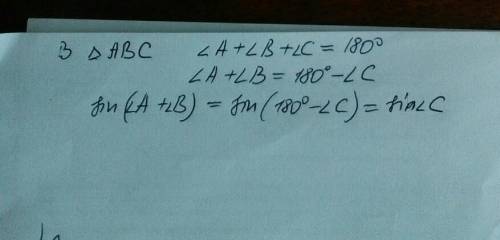 В △ABC ∠A+∠B+∠C = 180°
∠A+∠B = 180°-∠C
sin(∠A+∠B) = sin(180°-∠C) = sin∠C